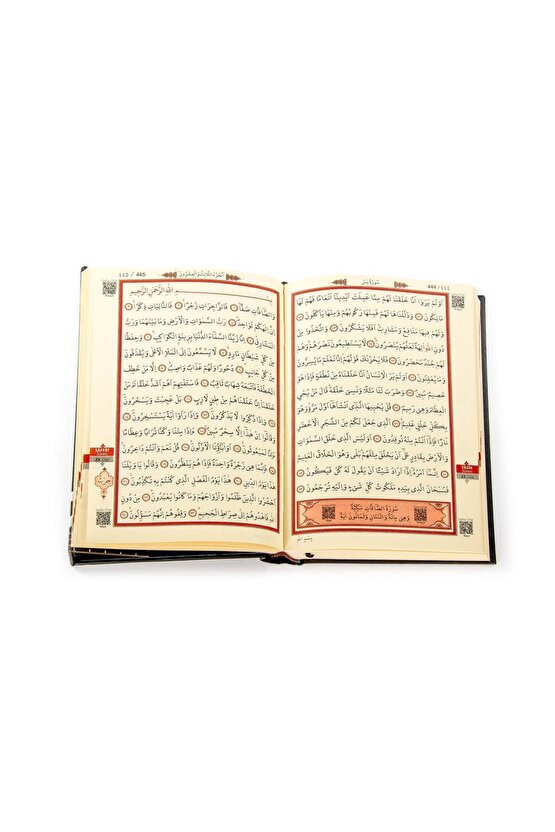 444 / 111
سُورَةُ يٰسٓ
اَوَلَمْ يَرَوْا اَنَّا خَلَقْنَا لَهُمْ مِمَّا عَمِلَتْ اَيْدِينَا اَنْعَامًا فَهُمْ لَهَا
مَالِكُونَ وَذَلَّلْنَاهَا لَهُمْ فَمِنْهَا رَكُوبُهُمْ وَمِنْهَا يَأْكُلُونَ
وَلَهُمْ فِيهَا مَنَافِعُ وَمَشَارِبُ اَفَلَا يَشْكُرُونَ وَاتَّخَذُوا مِنْ
دُونِ اللّٰهِ اٰلِهَةً لَعَلَّهُمْ يُنْصَرُونَ لَا يَسْتَطِيعُونَ نَصْرَهُمْ وَهُمْ
لَهُمْ جُنْدٌ مُحْضَرُونَ فَلَا يَحْزُنْكَ قَوْلُهُمْ اِنَّا نَعْلَمُ مَا يُسِرُّونَ
وَمَا يُعْلِنُونَ اَوَلَمْ يَرَ الْاِنْسَانُ اَنَّا خَلَقْنَاهُ مِنْ نُطْفَةٍ فَاِذَا هُوَ
خَصِيمٌ مُبِينٌ وَضَرَبَ لَنَا مَثَلًا وَنَسِيَ خَلْقَهُ قَالَ مَنْ يُحْيِ
الْعِظَامَ وَهِيَ رَمِيمٌ قُلْ يُحْيِيهَا الَّذِي اَنْشَاَهَا اَوَّلَ مَرَّةٍ وَهُوَ
بِكُلِّ خَلْقٍ عَلِيمٌ اَلَّذِي جَعَلَ لَكُمْ مِنَ الشَّجَرِ الْاَخْضَرِ
نَارًا فَاِذَا اَنْتُمْ مِنْهُ تُوقِدُونَ اَوَلَيْسَ الَّذِي خَلَقَ السَّمٰوَاتِ
وَالْاَرْضَ بِقَادِرٍ عَلٰى اَنْ يَخْلُقَ مِثْلَهُمْ بَلٰى وَهُوَ الْخَلَّاقُ الْعَلِيمُ
اِنَّمَا اَمْرُهُ اِذَا اَرَادَ شَيْئًا اَنْ يَقُولَ لَهُ كُنْ فَيَكُونُ
فَسُبْحَانَ الَّذِي بِيَدِهِ مَلَكُوتُ كُلِّ شَيْءٍ وَاِلَيْهِ تُرْجَعُونَ
سُورَةُ الصَّافَّاتِ مَكِّيَّةٌ
وَهِيَ مِائَةٌ وَاثْنَتَانِ وَثَمَانُونَ اٰيَةً
YASİN
23. Cüz
بِسْمِ اللّٰهِ
اَلْجُزْءُ الثَّالِثُ وَالْعِشْرُونَ
112 / 445
بِسْمِ اللّٰهِ الرَّحْمٰنِ الرَّحِيمِ
وَالصَّافَّاتِ صَفًّا فَالزَّاجِرَاتِ زَجْرًا فَالتَّالِيَاتِ ذِكْرًا
اِنَّ اِلٰهَكُمْ لَوَاحِدٌ رَبُّ السَّمٰوَاتِ وَالْاَرْضِ وَمَا بَيْنَهُمَا وَرَبُّ
الْمَشَارِقِ اِنَّا زَيَّنَّا السَّمَاءَ الدُّنْيَا بِزِينَةٍ الْكَوَاكِبِ وَحِفْظًا
مِنْ كُلِّ شَيْطَانٍ مَارِدٍ لَا يَسَّمَّعُونَ اِلَى الْمَلَاِ الْاَعْلٰى وَيُقْذَفُونَ
مِنْ كُلِّ جَانِبٍ دُحُورًا وَلَهُمْ عَذَابٌ وَاصِبٌ اِلَّا مَنْ خَطِفَ
الْخَطْفَةَ فَاَتْبَعَهُ شِهَابٌ ثَاقِبٌ فَاسْتَفْتِهِمْ اَهُمْ اَشَدُّ خَلْقًا اَمْ مَنْ
خَلَقْنَا اِنَّا خَلَقْنَاهُمْ مِنْ طِينٍ لَازِبٍ بَلْ عَجِبْتَ وَيَسْخَرُونَ
وَاِذَا ذُكِّرُوا لَا يَذْكُرُونَ وَاِذَا رَاَوْا اٰيَةً يَسْتَسْخِرُونَ
وَقَالُوا اِنْ هٰذَا اِلَّا سِحْرٌ مُبِينٌ ءَاِذَا مِتْنَا وَكُنَّا تُرَابًا وَعِظَامًا
ءَاِنَّا لَمَبْعُوثُونَ اَوَاٰبَاؤُنَا الْاَوَّلُونَ قُلْ نَعَمْ وَاَنْتُمْ دَاخِرُونَ
فَاِنَّمَا هِيَ زَجْرَةٌ وَاحِدَةٌ فَاِذَا هُمْ يَنْظُرُونَ وَقَالُوا يَا وَيْلَنَا
هٰذَا يَوْمُ الدِّينِ هٰذَا يَوْمُ الْفَصْلِ الَّذِي كُنْتُمْ بِهِ تُكَذِّبُونَ
اُحْشُرُوا الَّذِينَ ظَلَمُوا وَاَزْوَاجَهُمْ وَمَا كَانُوا يَعْبُدُونَ مِنْ دُونِ
اللّٰهِ فَاهْدُوهُمْ اِلٰى صِرَاطِ الْجَحِيمِ وَقِفُوهُمْ اِنَّهُمْ مَسْؤُلُونَ
SAFFAT
23. Cüz